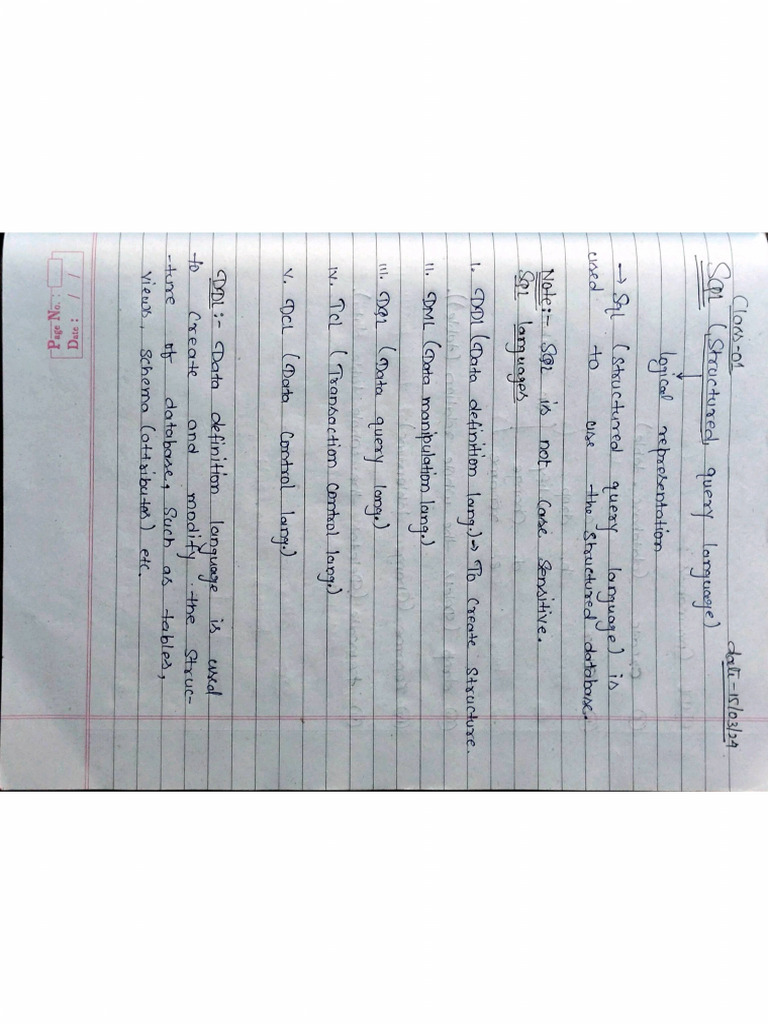 Class-01
date-15/03/24
SQL (Structured query language)
logical representation
→ Sql (structured query language) is
used to use the structured database.
Note:- SQL is not Case Sensitive.
SQL languages
i. DDL (Data definition lang.) → To Create Structure.
ii. DML (Data manipulation lang.)
iii. DQL (Data query lang.)
iv. TCL (Transaction Control lang.)
v. DCL (Data Control lang.)
DDL:- Data definition language is used
to create and modify the struc-
-ture of database, Such as tables,
views, schema (attributes) etc.
Page No.:
Date: / /